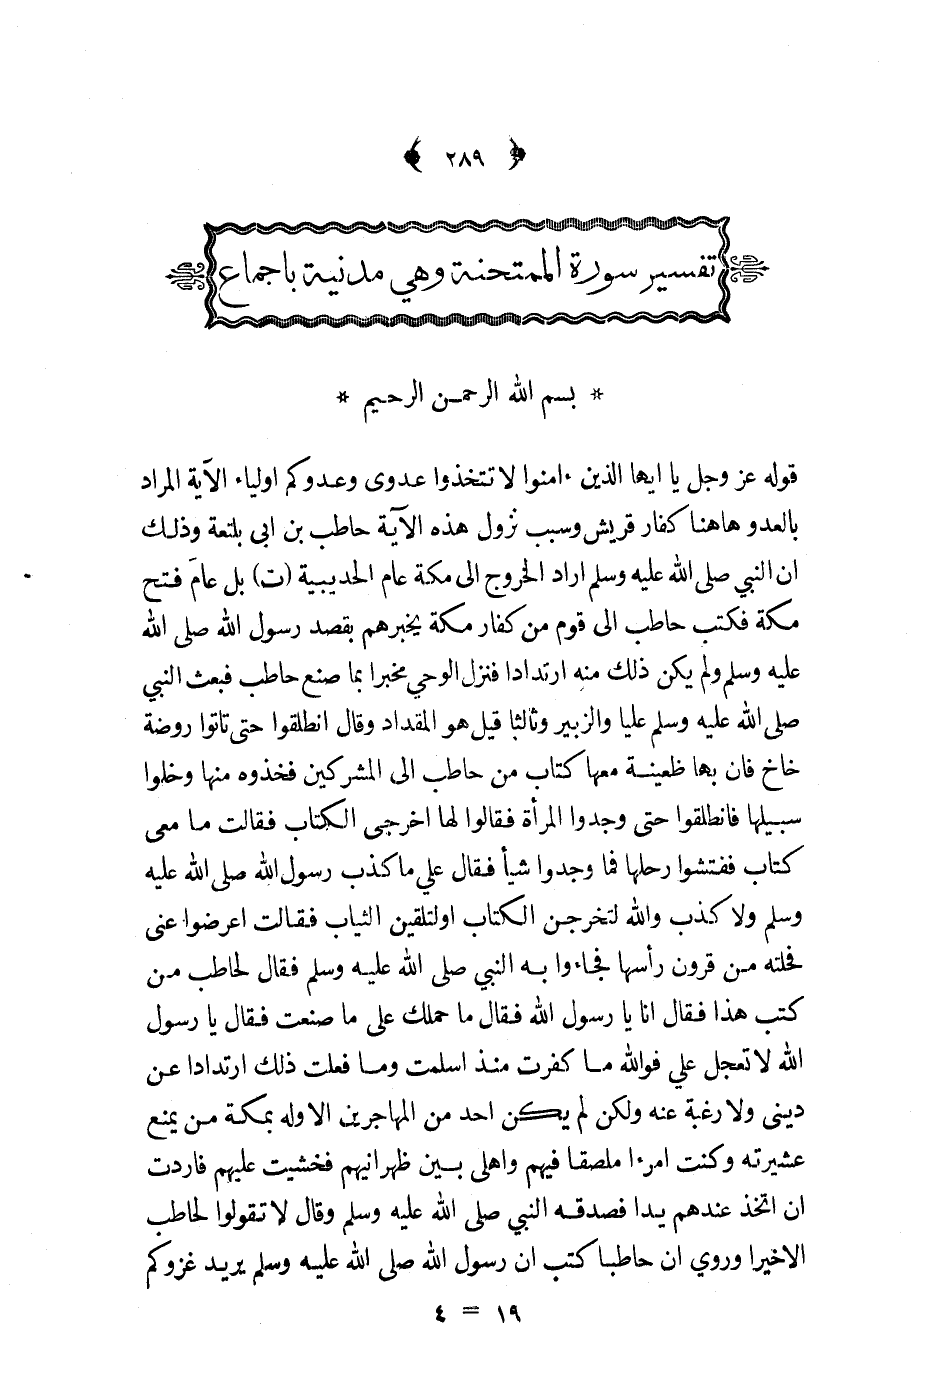 ﴿ ٢٨٩ ﴾
تفسير سورة الممتحنة وهي مدنية باجماع
* بسم الله الرحمن الرحيم *
قوله عز وجل يا ايها الذين ءامنوا لا تتخذوا عدوى وعدوكم اولياء الآية المراد
بالعدو هاهنا كفار قريش وسبب نزول هذه الآية حاطب بن ابى بلتعة وذلك
ان النبي صلى الله عليه وسلم اراد الخروج الى مكة عام الحديبية (ت) بل عام فتح
مكة فكتب حاطب الى قوم من كفار مكة يخبرهم بقصد رسول الله صلى الله
عليه وسلم ولم يكن ذلك منه ارتدادا فنزل الوحي مخبرا بما صنع حاطب فبعث النبي
صلى الله عليه وسلم عليا والزبير وثالثا قيل هو المقداد وقال انطلقوا حتى تاتوا روضة
خاخ فان بها ظعينة معها كتاب من حاطب الى المشركين فخذوه منها وخلوا
سبيلها فانطلقوا حتى وجدوا المرأة فقالوا لها اخرجى الكتاب فقالت ما معى
كتاب ففتشوا رحلها فما وجدوا شيأ فقال علي ما كذب رسول الله صلى الله عليه
وسلم ولا كذب والله لتخرجن الكتاب اولتلقين الثياب فقالت اعرضوا عنى
فحلته من قرون رأسها فجاءوا به النبي صلى الله عليه وسلم فقال لحاطب من
كتب هذا فقال انا يا رسول الله فقال ما حملك على ما صنعت فقال يا رسول
الله لا تعجل علي فوالله ما كفرت منذ اسلمت وما فعلت ذلك ارتدادا عن
دينى ولا رغبة عنه ولكن لم يكن احد من المهاجرين الا وله بمكة من يمنع
عشيرته وكنت امرءا ملصقا فيهم واهلى بين ظهرانيهم فخشيت عليهم فاردت
ان اتخذ عندهم يدا فصدقه النبي صلى الله عليه وسلم وقال لا تقولوا لحاطب
الاخيرا وروي ان حاطبا كتب ان رسول الله صلى الله عليه وسلم يريد غزوكم
١٩ = ٤